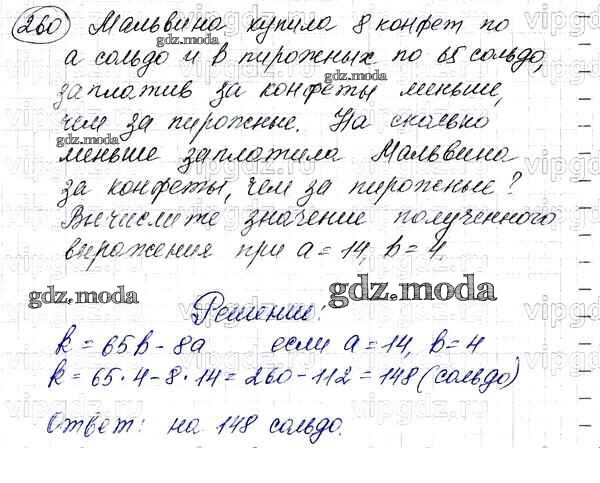 260 Мальвина купила 8 конфет по
gdz.moda
а сольдо и в пирожных по 65 сольдо,
gdz.moda
заплатив за конфеты меньше,
чем за пирожные. На сколько
gdz.moda
меньше заплатила Мальвина
за конфеты, чем за пирожные?
Вычислите значение полученного
выражения при a = 14, b = 4.
gdz.moda
gdz.moda
Решение:
k = 65b - 8a если a = 14, b = 4
k = 65 · 4 - 8 · 14 = 260 - 112 = 148 (сольдо)
Ответ: на 148 сольдо.